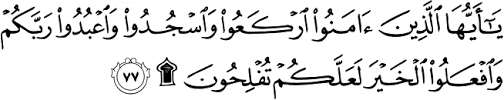 يَـٰٓأَيُّهَا ٱلَّذِينَ ءَامَنُوا۟ ٱرْكَعُوا۟ وَٱسْجُدُوا۟ وَٱعْبُدُوا۟ رَبَّكُمْ
وَٱفْعَلُوا۟ ٱلْخَيْرَ لَعَلَّكُمْ تُفْلِحُونَ ۩ ٧٧